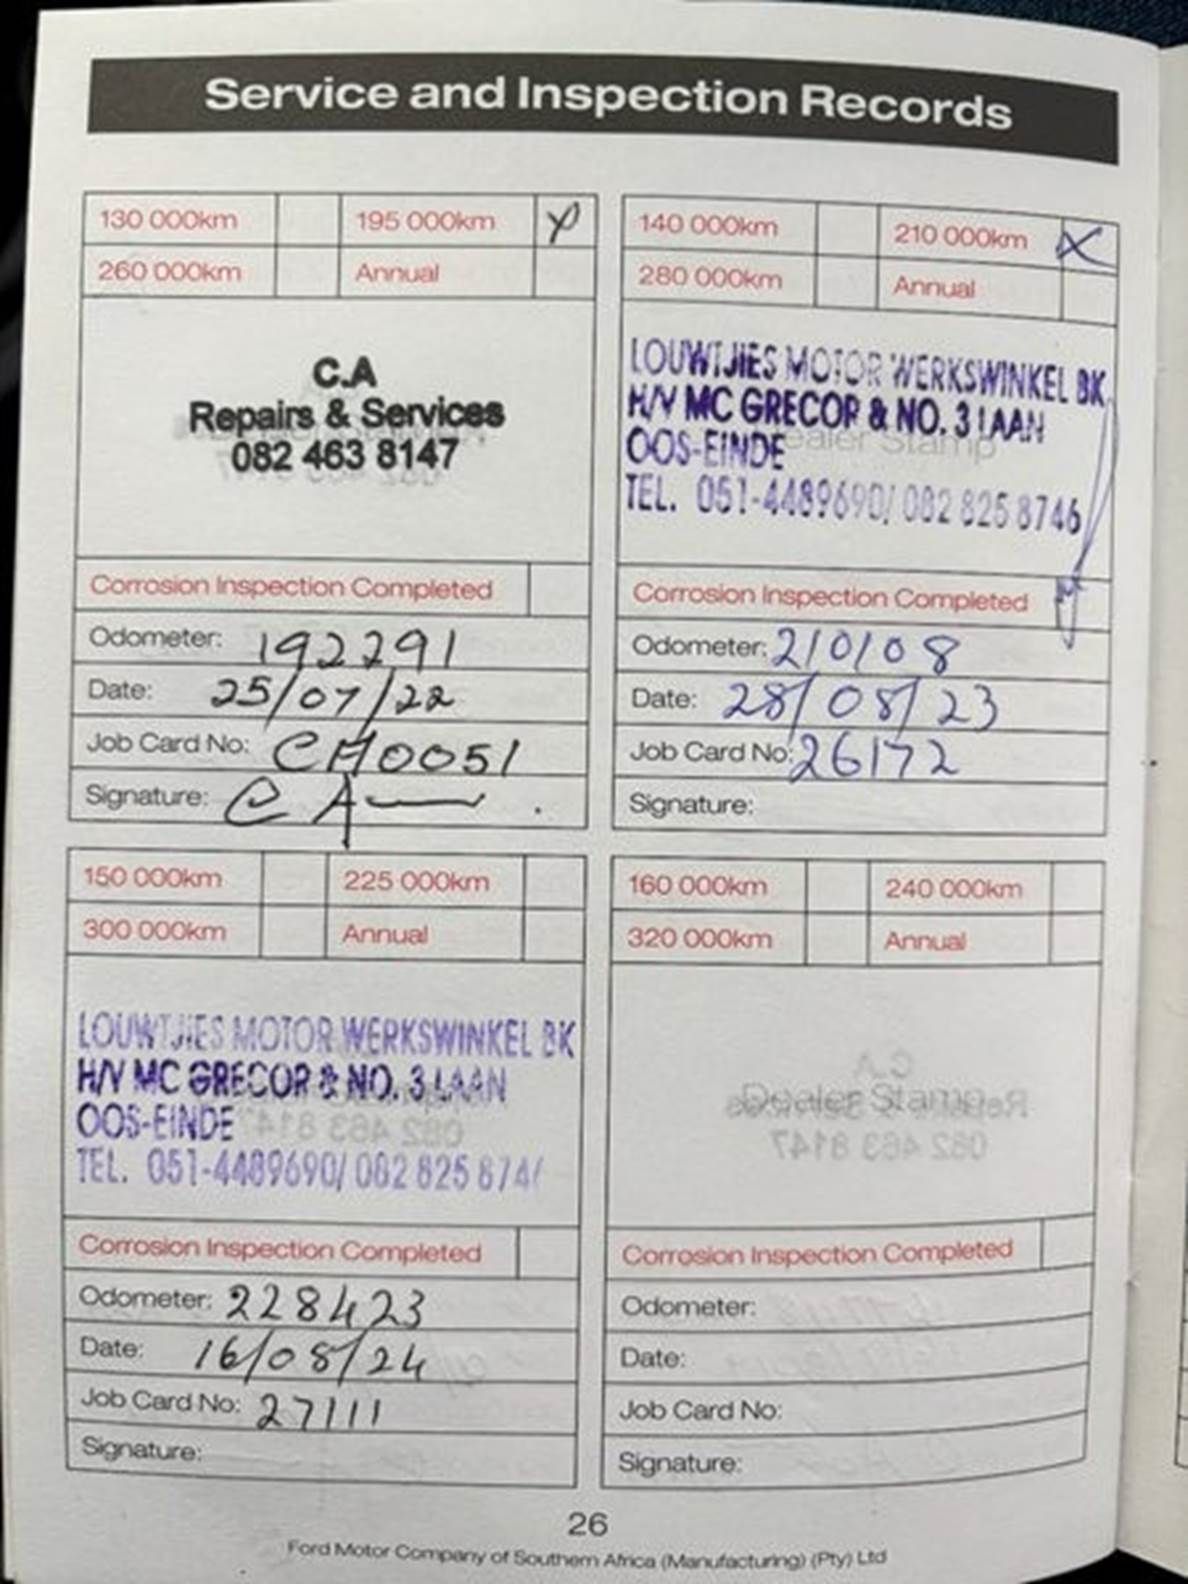 Service and Inspection Records
130 000km 195 000km X
260 000km Annual
C.A
Repairs & Services
082 463 8147
Corrosion Inspection Completed
Odometer: 192291
Date: 25/07/22
Job Card No: CA0051
Signature: CA
140 000km 210 000km X
280 000km Annual
LOUWTJIES MOTOR WERKSWINKEL BK
H/V MC GRECOR & NO. 3 LAAN
Dealer Stamp
OOS-EINDE
TEL. 051-4489690/ 082 825 8746
Corrosion Inspection Completed
Odometer: 210108
Date: 28/08/23
Job Card No: 26172
Signature:
150 000km 225 000km
300 000km Annual
LOUWTJIES MOTOR WERKSWINKEL BK
H/V MC GRECOR & NO. 3 LAAN
OOS-EINDE
TEL. 051-4489690/ 082 825 874
Corrosion Inspection Completed
Odometer: 228423
Date: 16/08/24
Job Card No: 27111
Signature:
160 000km 240 000km
320 000km Annual
Dealer Stamp
Corrosion Inspection Completed
Odometer:
Date:
Job Card No:
Signature:
26
Ford Motor Company of Southern Africa (Manufacturing) (Pty) Ltd